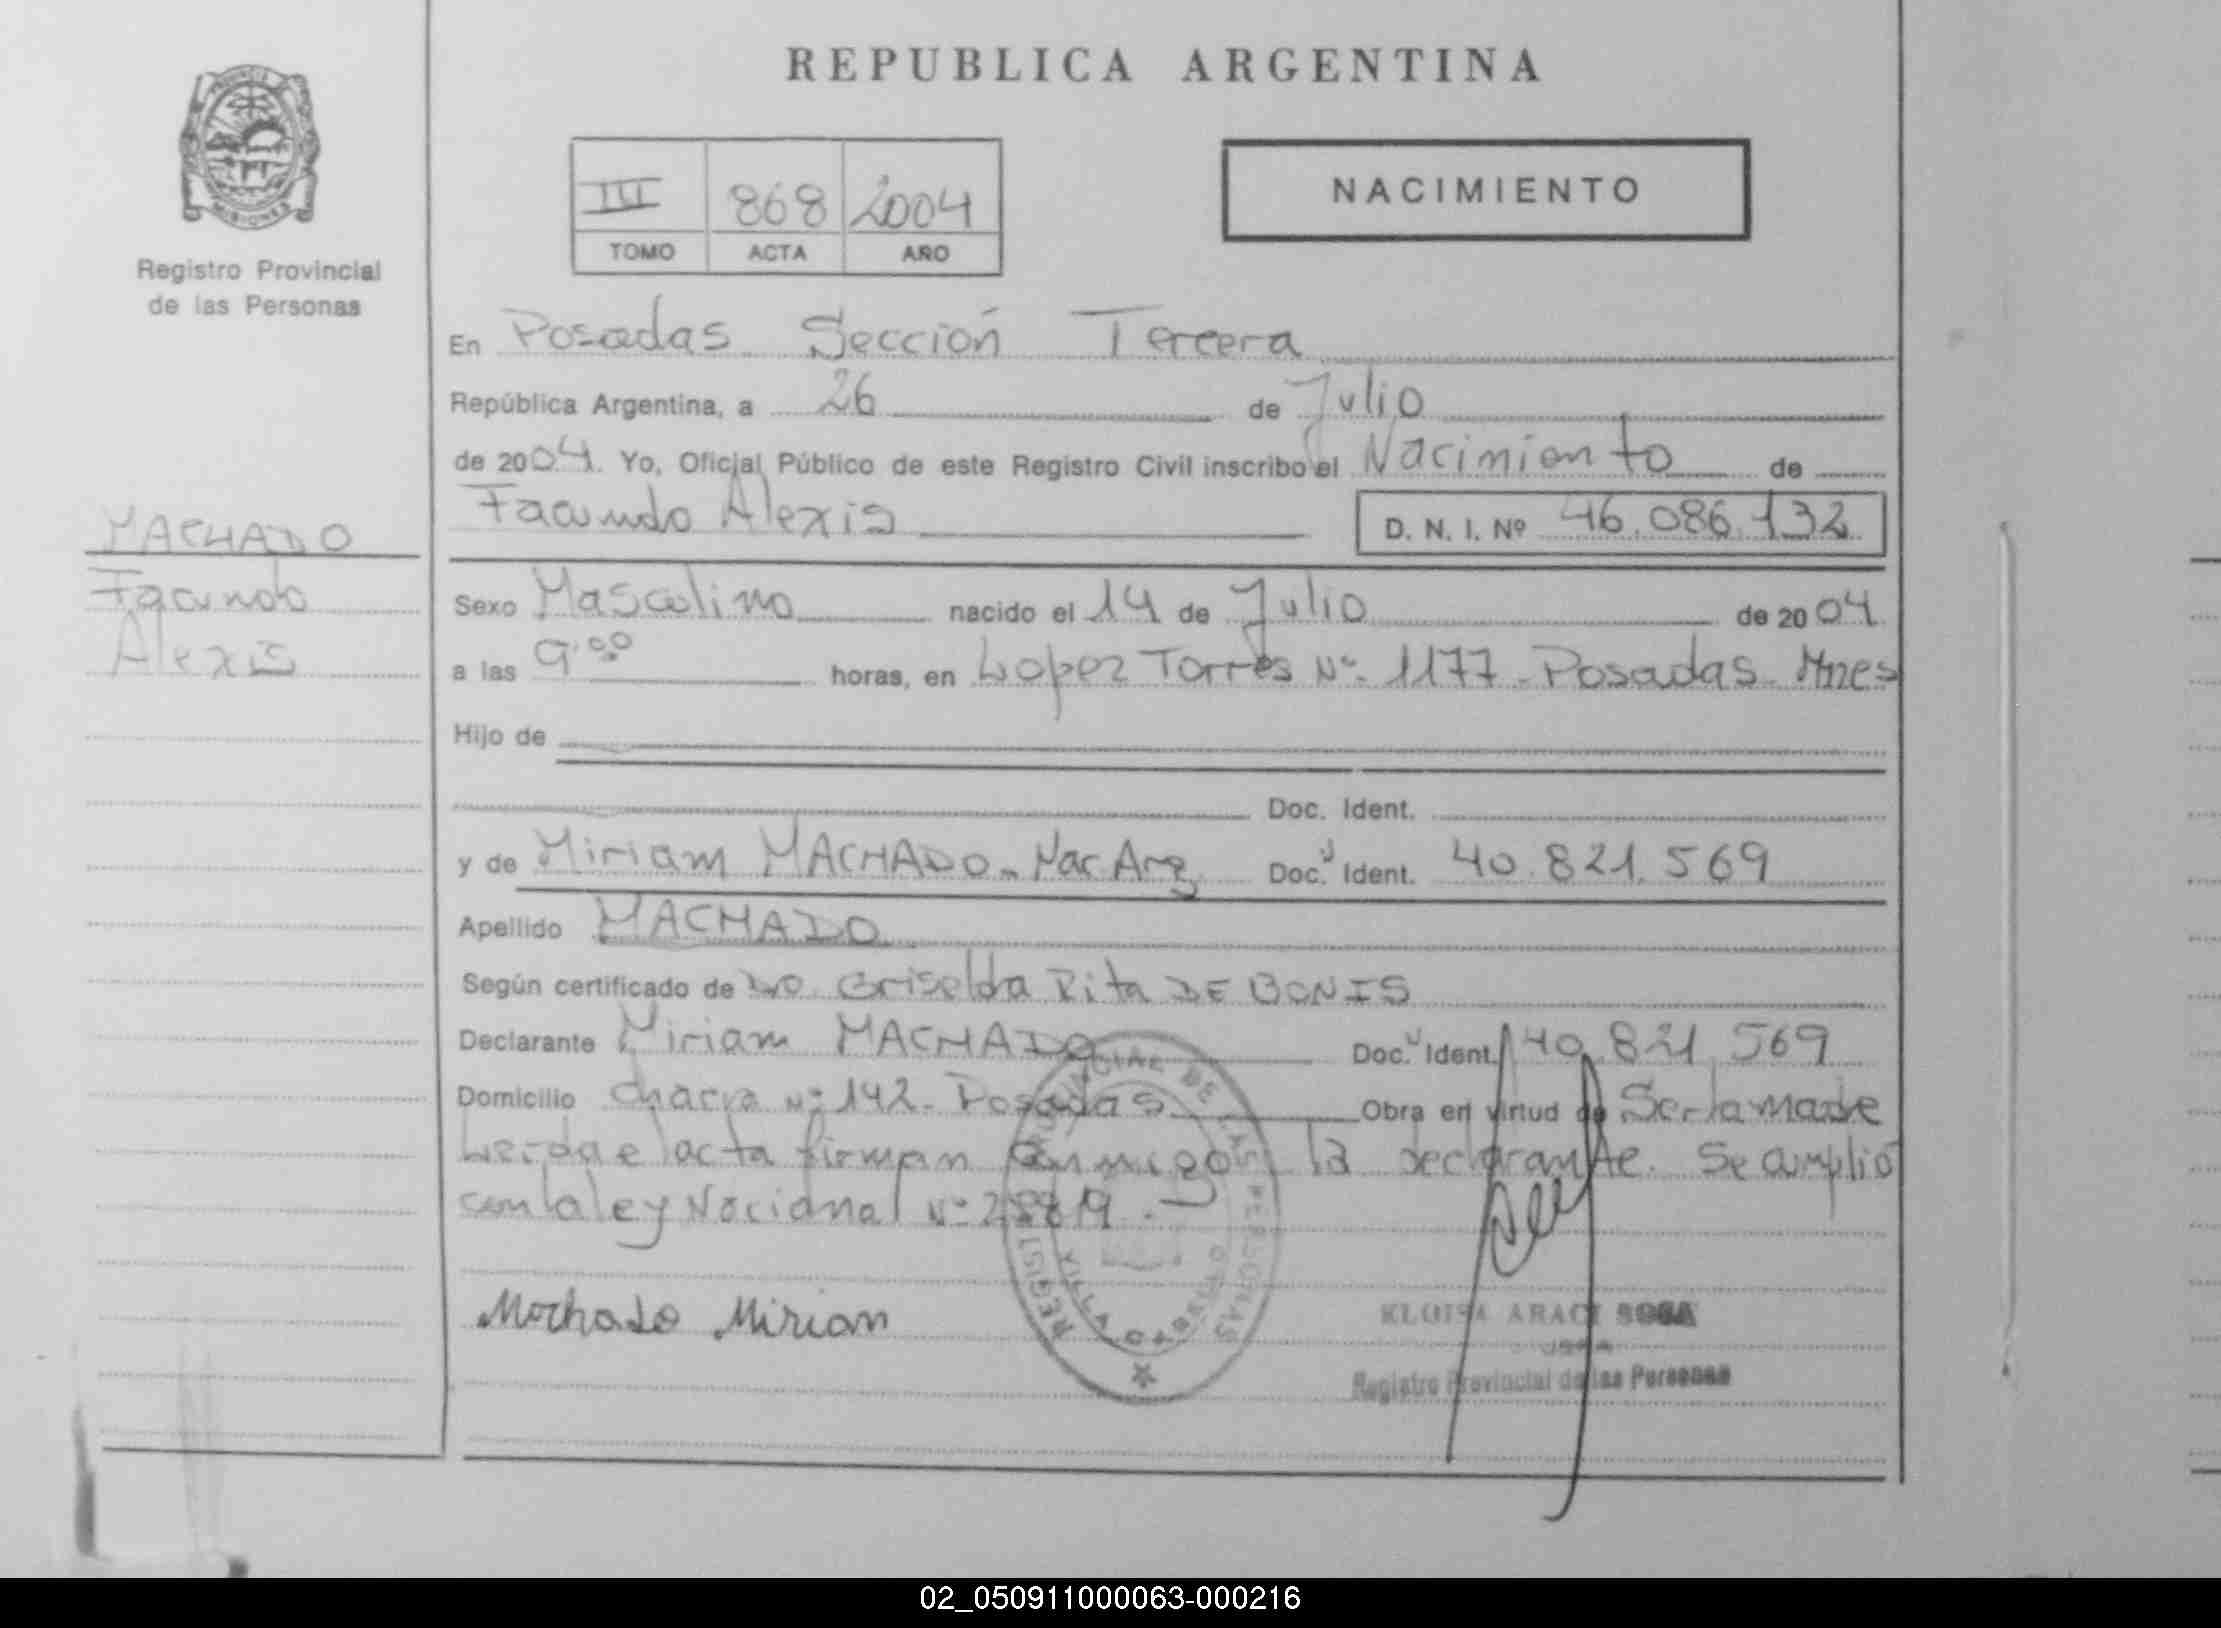 REPUBLICA ARGENTINA
PROVINCIA
MISIONES
Registro Provincial
de las Personas
III 868 2004
TOMO ACTA AÑO
NACIMIENTO
En Posadas Sección Tercera
República Argentina, a 26 de Julio
de 2004. Yo, Oficial Público de este Registro Civil inscribo el Nacimiento de
Facundo Alexis D. N. I. Nº 46.086.132
MACHADO
Facundo
Alexis
Sexo Masculino nacido el 14 de Julio de 2004
a las 9:00 horas, en Lopez Torres Nº 1177 - Posadas - Mnes
Hijo de
Doc. Ident.
y de Miriam MACHADO - Nac. Arg Doc. Ident. 40.821.569
Apellido MACHADO
Según certificado de Griselda Rita DE BONIS
Declarante Miriam MACHADO Doc. Ident. 40.821.569
Domicilio Chacra Nº 142 - Posadas Obra en virtud de Ser la madre
Leida el acta firman conmigo la declarante. Se amplió
con la ley Nacional Nº
Machado Mirian
REGISTRO PROVINCIAL DE LAS PERSONAS
VILLA
ARACI SOSA
Registro Provincial de las Personas
02_050911000063-000216